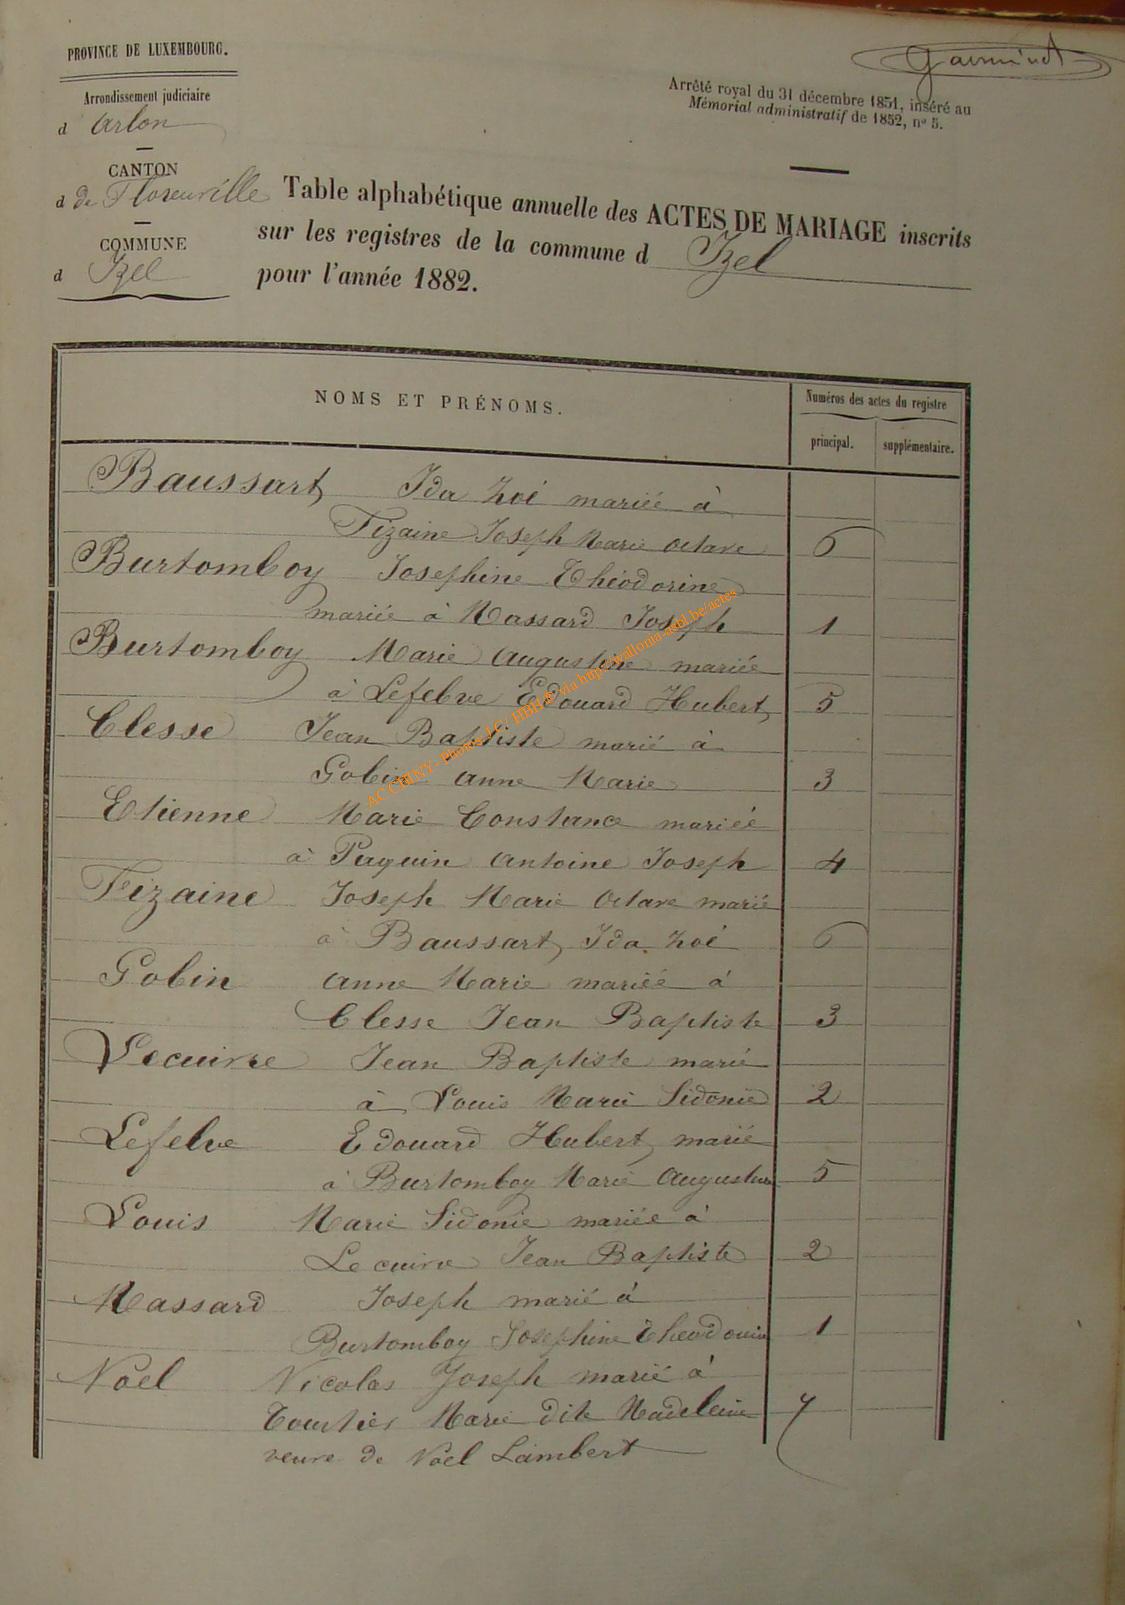 PROVINCE DE LUXEMBOURG.
Arrondissement judiciaire
d'Arlon
CANTON
d de Florenville
COMMUNE
d Izel
Arrêté royal du 31 décembre 1851, inséré au
Mémorial administratif de 1852, nº 5.
Table alphabétique annuelle des ACTES DE MARIAGE inscrits
sur les registres de la commune d Izel
pour l'année 1882.
NOMS ET PRÉNOMS.
Numéros des actes du registre
principal. supplémentaire.
Baussart Ida Zoé mariée à
Fizaine Joseph Marie Octave 6
Burtomboy Josephine Théodorine
mariée à Massard Joseph 1
Burtomboy Marie Augustine mariée
à Lefebve Edouard Hubert 5
Clesse Jean Baptiste marié à
Gobin Anne Marie 3
Etienne Marie Constance mariée
à Paquin Antoine Joseph 4
Fizaine Joseph Marie Octave marié
à Baussart Ida Zoé 6
Gobin Anne Marie mariée à
Clesse Jean Baptiste 3
Lecuivre Jean Baptiste marié
à Louis Marie Sidonie 2
Lefebve Edouard Hubert marié
à Burtomboy Marie Augustine 5
Louis Marie Sidonie mariée à
Lecuivre Jean Baptiste 2
Massard Joseph marié à
Burtomboy Josephine Théodorine 1
Noël Nicolas Joseph marié à
Marie dite Madeleine 7
veuve de Noël Lambert
AC CHINY - Photos J.C. HBH © via http://wallonia-asbl.be/actes